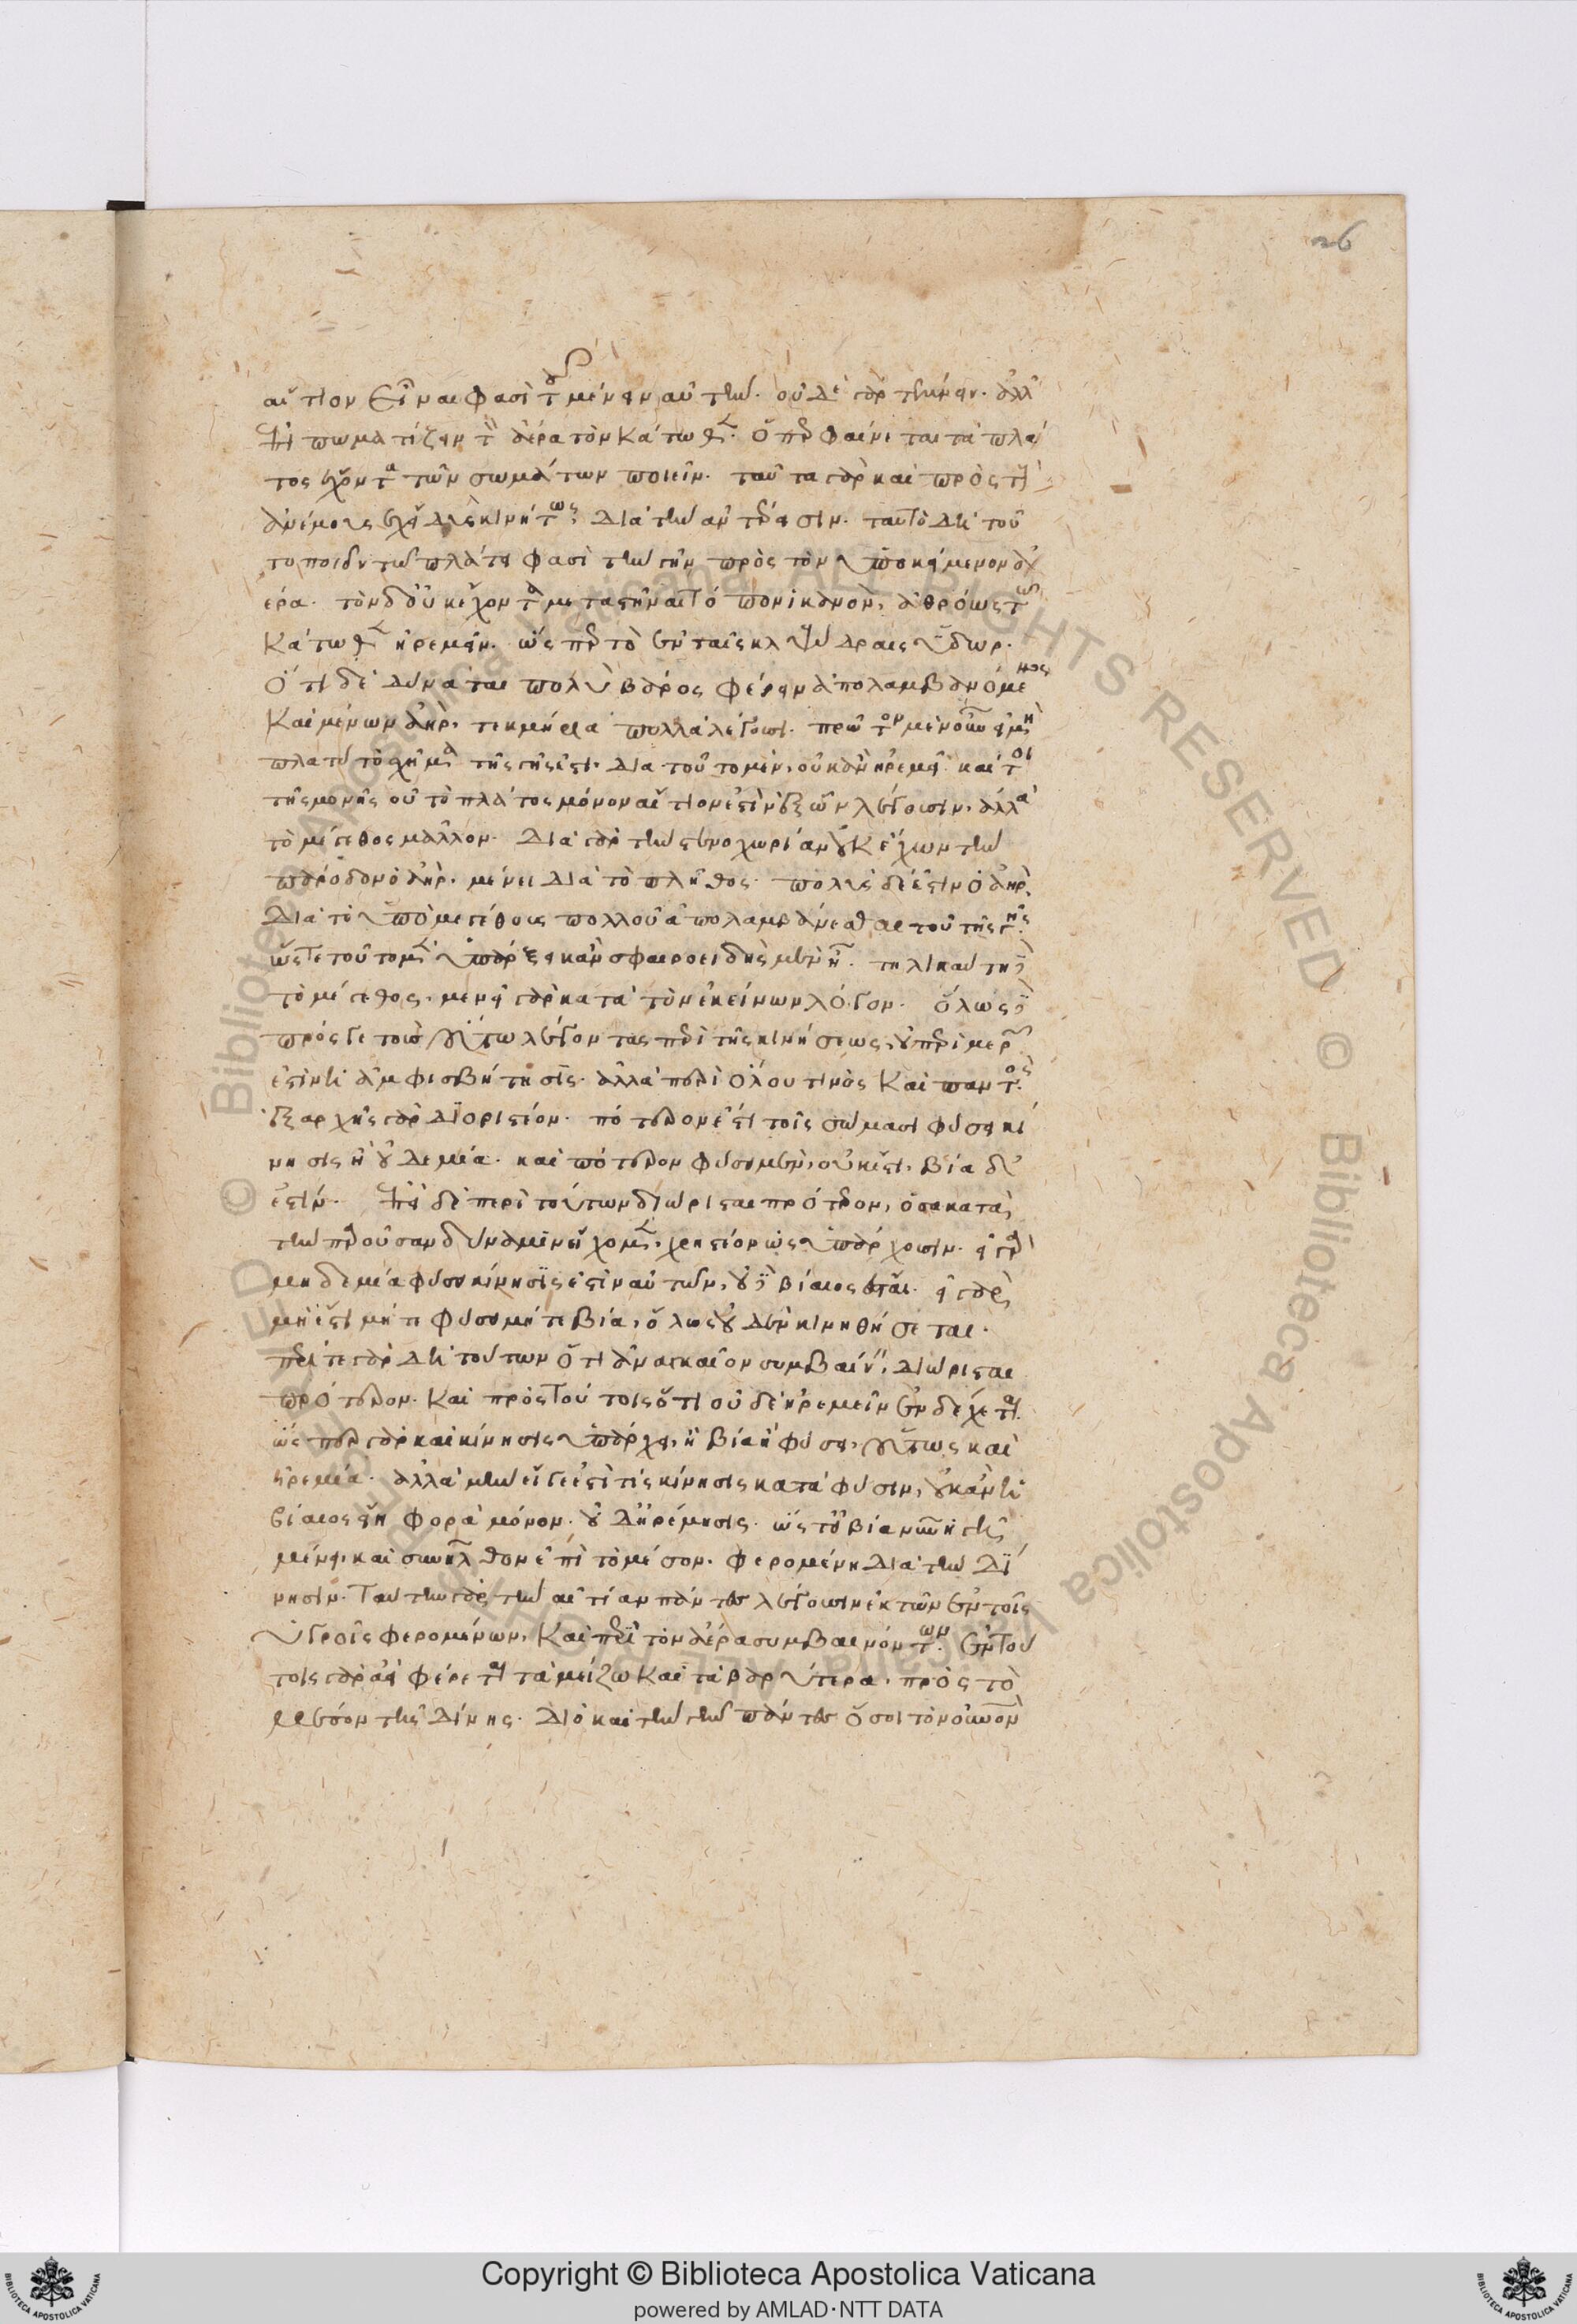 αἴτιον εἶναι φασὶ τοῦ μένειν αὐτήν. οὐδὲ γὰρ τέμνειν. ἀλλ'
ἐπιπωματίζειν τὸν ἀέρα τὸν κάτωθεν. ὅπερ φαίνεται τὰ πλά
τος ἔχοντα τῶν σωμάτων ποιεῖν. ταῦτα γὰρ καὶ πρὸς τοὺς
ἀνέμους ἔχει δυσκινήτως, διὰ τὴν ἀντέρεισιν. ταυτὸ δὴ τοῦ
το ποιεῖν τῷ πλάτει φασὶ τὴν γῆν πρὸς τὸν ὑποκείμενον ἀ
έρα. τὸν δ' οὐκ ἔχοντα μεταστῆναι τόπον ἱκανὸν, ἀθρόως τῷ
κάτωθεν ἠρεμεῖν. ὥσπερ τὸ ἐν ταῖς κλεψύδραις ὕδωρ.
Ὅτι δὲ δύναται πολὺ βάρος φέρειν ἀπολαμβανόμενος
καὶ μένων ἀήρ, τεκμήρια πολλὰ λέγουσι. πρῶτον μὲν οὖν εἰ μὴ
πλατὺ τὸ σχῆμα τῆς γῆς ἐστι, διὰ τοῦτο μὲν, οὐκ ἂν ἠρεμεῖ. καίτοι
τῆς μονῆς οὐ τὸ πλάτος μόνον αἴτιον ἐστὶν ἐξ ὧν λέγουσιν, ἀλλὰ
τὸ μέγεθος μᾶλλον. διὰ γὰρ τὴν στενοχωρίαν οὐκ ἔχων τὴν
πάροδον ὁ ἀήρ, μένει διὰ τὸ πλῆθος. πολὺς δέ ἐστιν ὁ ἀὴρ
διὰ τὸ ὑπὸ μεγέθους πολλοῦ ἀπολαμβάνεσθαι τοῦ τῆς γῆς.
ὥστε τοῦτο μὲν ὑπάρξει κἂν σφαιροειδὴς μὲν ᾖ. τηλικαύτη δὲ
τὸ μέγεθος. μενεῖ γὰρ κατὰ τὸν ἐκείνων λόγον. ὅλως δὲ
πρός γε τοὺς οὕτω λέγοντας περὶ τῆς κινήσεως, οὐ περὶ μερῶν
ἐστὶν ἡ ἀμφισβήτησις. ἀλλὰ περὶ ὅλου τινὸς καὶ παντός.
ἐξ αρχῆς γὰρ διοριστέον. πότερον ἐστὶ τοῖς σώμασι φύσει κί
νησις ἢ οὐδεμία. καὶ πότερον φύσει μὲν, οὐκ ἔστι, βία δ'
ἐστίν. ἐπεὶ δὲ περὶ τούτων διώρισται πρότερον, ὅσα κατὰ
τὴν παροῦσαν δύναμιν εἴχομεν, χρηστέον ὡς ὑπάρχουσιν. εἰ γὰρ
μηδεμία φύσει κίνησις ἐστὶν αὐτῶν, οὐδὲ βίαιος ἔσται. εἰ γὰρ
μὴ ἔστι μήτε φύσει μήτε βία, ὅλως οὐδὲν κινηθήσεται.
περί τε γὰρ δὴ τούτων ὅτι ἀναγκαῖον συμβαίνειν, διώρισται
πρότερον. καὶ πρὸς τούτοις ὅτι οὐδὲ ἠρεμεῖν ἐνδέχεται.
ὥσπερ γὰρ καὶ κίνησις ὑπάρχει, ἢ βία ἢ φύσει, οὕτως καὶ
ἠρεμία. ἀλλὰ μὴν εἴ γε ἐστὶ τὶς κίνησις κατὰ φύσιν, οὐκ ἂν ἡ
βίαιος εἴη φορὰ μόνον. οὐδ' ἠρέμησις. ὥστ' εἰ βία νῦν ἡ γῆ
μένει, καὶ συνῆλθον ἐπὶ τὸ μέσον, φερομένη διὰ τὴν δί
νησιν. ταύτην γὰρ τὴν αἰτίαν πάντες λέγουσιν ἐκ τῶν ἐν τοῖς
ὑγροῖς φερομένων, καὶ περὶ τὸν ἀέρα συμβαινόντων. ἐν τού
τοις γὰρ ἀεὶ φέρεται τὰ μείζω καὶ τὰ βαρύτερα, πρὸς τὸ
μέσον τῆς δίνης. διὸ καὶ τὴν γῆν πάντες ὅσοι τὸν οὐρανὸν